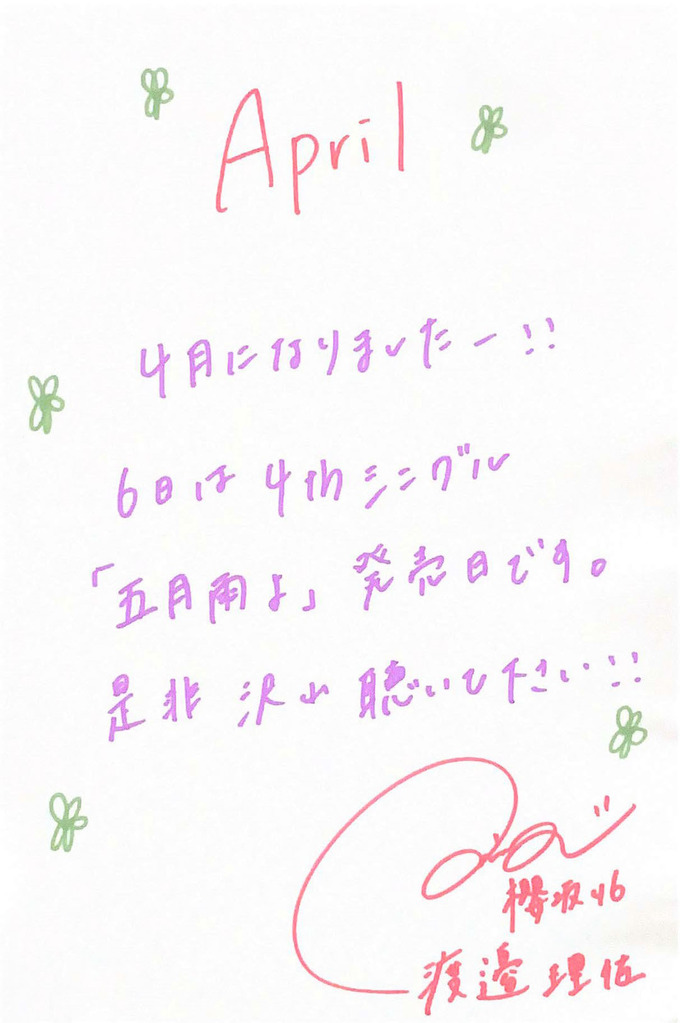 April
4月になりましたー!!
6日は 4thシングル
「五月雨よ」発売日です。
是非 沢山 聴いて下さい!!
櫻坂46
渡邉理佐